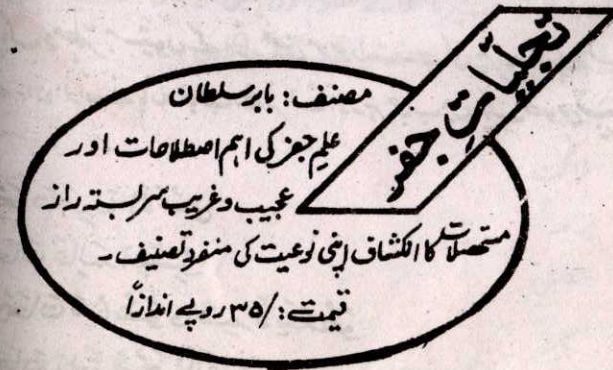 تجلیات جفر
مصنف: بابر سلطان
علم جفر کی اہم اصطلاحات اور
عجیب و غریب سربستہ راز
مستحصلات کا انکشاف اپنی نوعیت کی منفرد تصنیف ۔
قیمت: /۳۵ روپے اندازاً